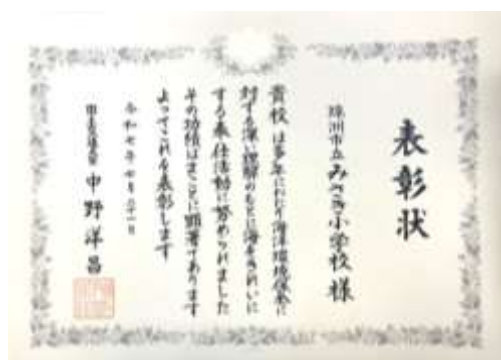 表彰状
珠洲市立みさき小学校様
貴校は多年にわたり海洋環境保全に
対する深い理解のもとに海をきれいに
する奉仕活動に努められました
その功績はまことに顕著であります
よってこれを表彰します
令和七年七月二十一日
国土交通大臣 中野洋昌